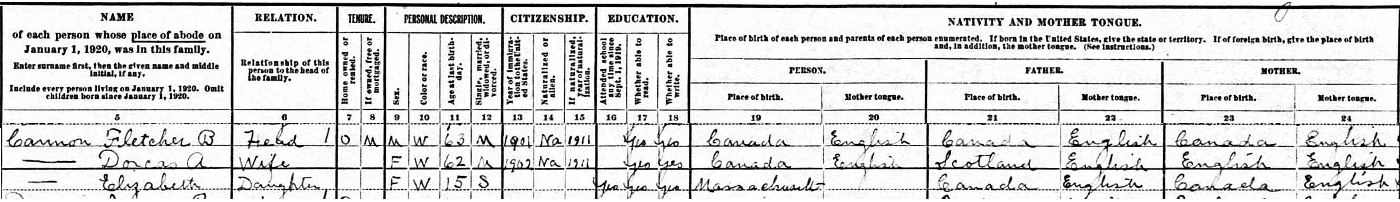 NAME
of each person whose place of abode on
January 1, 1920, was in this family.
Enter surname first, then the given name and middle
initial, if any.
Include every person living on January 1, 1920. Omit
children born since January 1, 1920.
5
RELATION.
Relationship of this
person to the head of
the family.
6
TENURE.
Home owned or
rented.
If owned, free or
mortgaged.
7 8
PERSONAL DESCRIPTION.
Sex.
Color or race.
Age at last birth-
day.
Single, married,
widowed, or di-
vorced.
9 10 11 12
CITIZENSHIP.
Year of immigra-
tion to the Unit-
ed States.
Naturalized or
alien.
If naturalized,
year of natural-
ization.
13 14 15
EDUCATION.
Attended school
any time since
Sept. 1, 1919.
Whether able to
read.
Whether able to
write.
16 17 18
NATIVITY AND MOTHER TONGUE.
Place of birth of each person and parents of each person enumerated. If born in the United States, give the state or territory. If of foreign birth, give the place of birth
and, in addition, the mother tongue. (See instructions.)
PERSON. FATHER. MOTHER.
Place of birth. Mother tongue. Place of birth. Mother tongue. Place of birth. Mother tongue.
19 20 21 22 23 24
Cannon Fletcher B Head 1 O M M W 63 M 1901 Na 1911 Yes Yes Canada English Canada English Canada English
— Dorcas A Wife F W 62 M 1902 Na 1911 Yes Yes Canada English Scotland English English English
— Elizabeth Daughter F W 15 S Yes Yes Yes Massachusetts Canada English Canada English